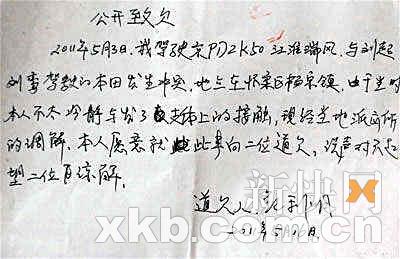 公开致欠
2011年5月3日, 我驾驶京PD2K50江淮瑞风, 与刘起
刘 驾驶的本田发生冲突, 地点在怀柔区杨宋镇, 由于当时
本人不太冷静与 发了 肢体上的接触, 现经当地派出所
的调解, 本人愿意就此事向二位道欠, 说声对不起
望二位 谅解,
道欠人
2011年5月 日
新快网
xkb.com.cn